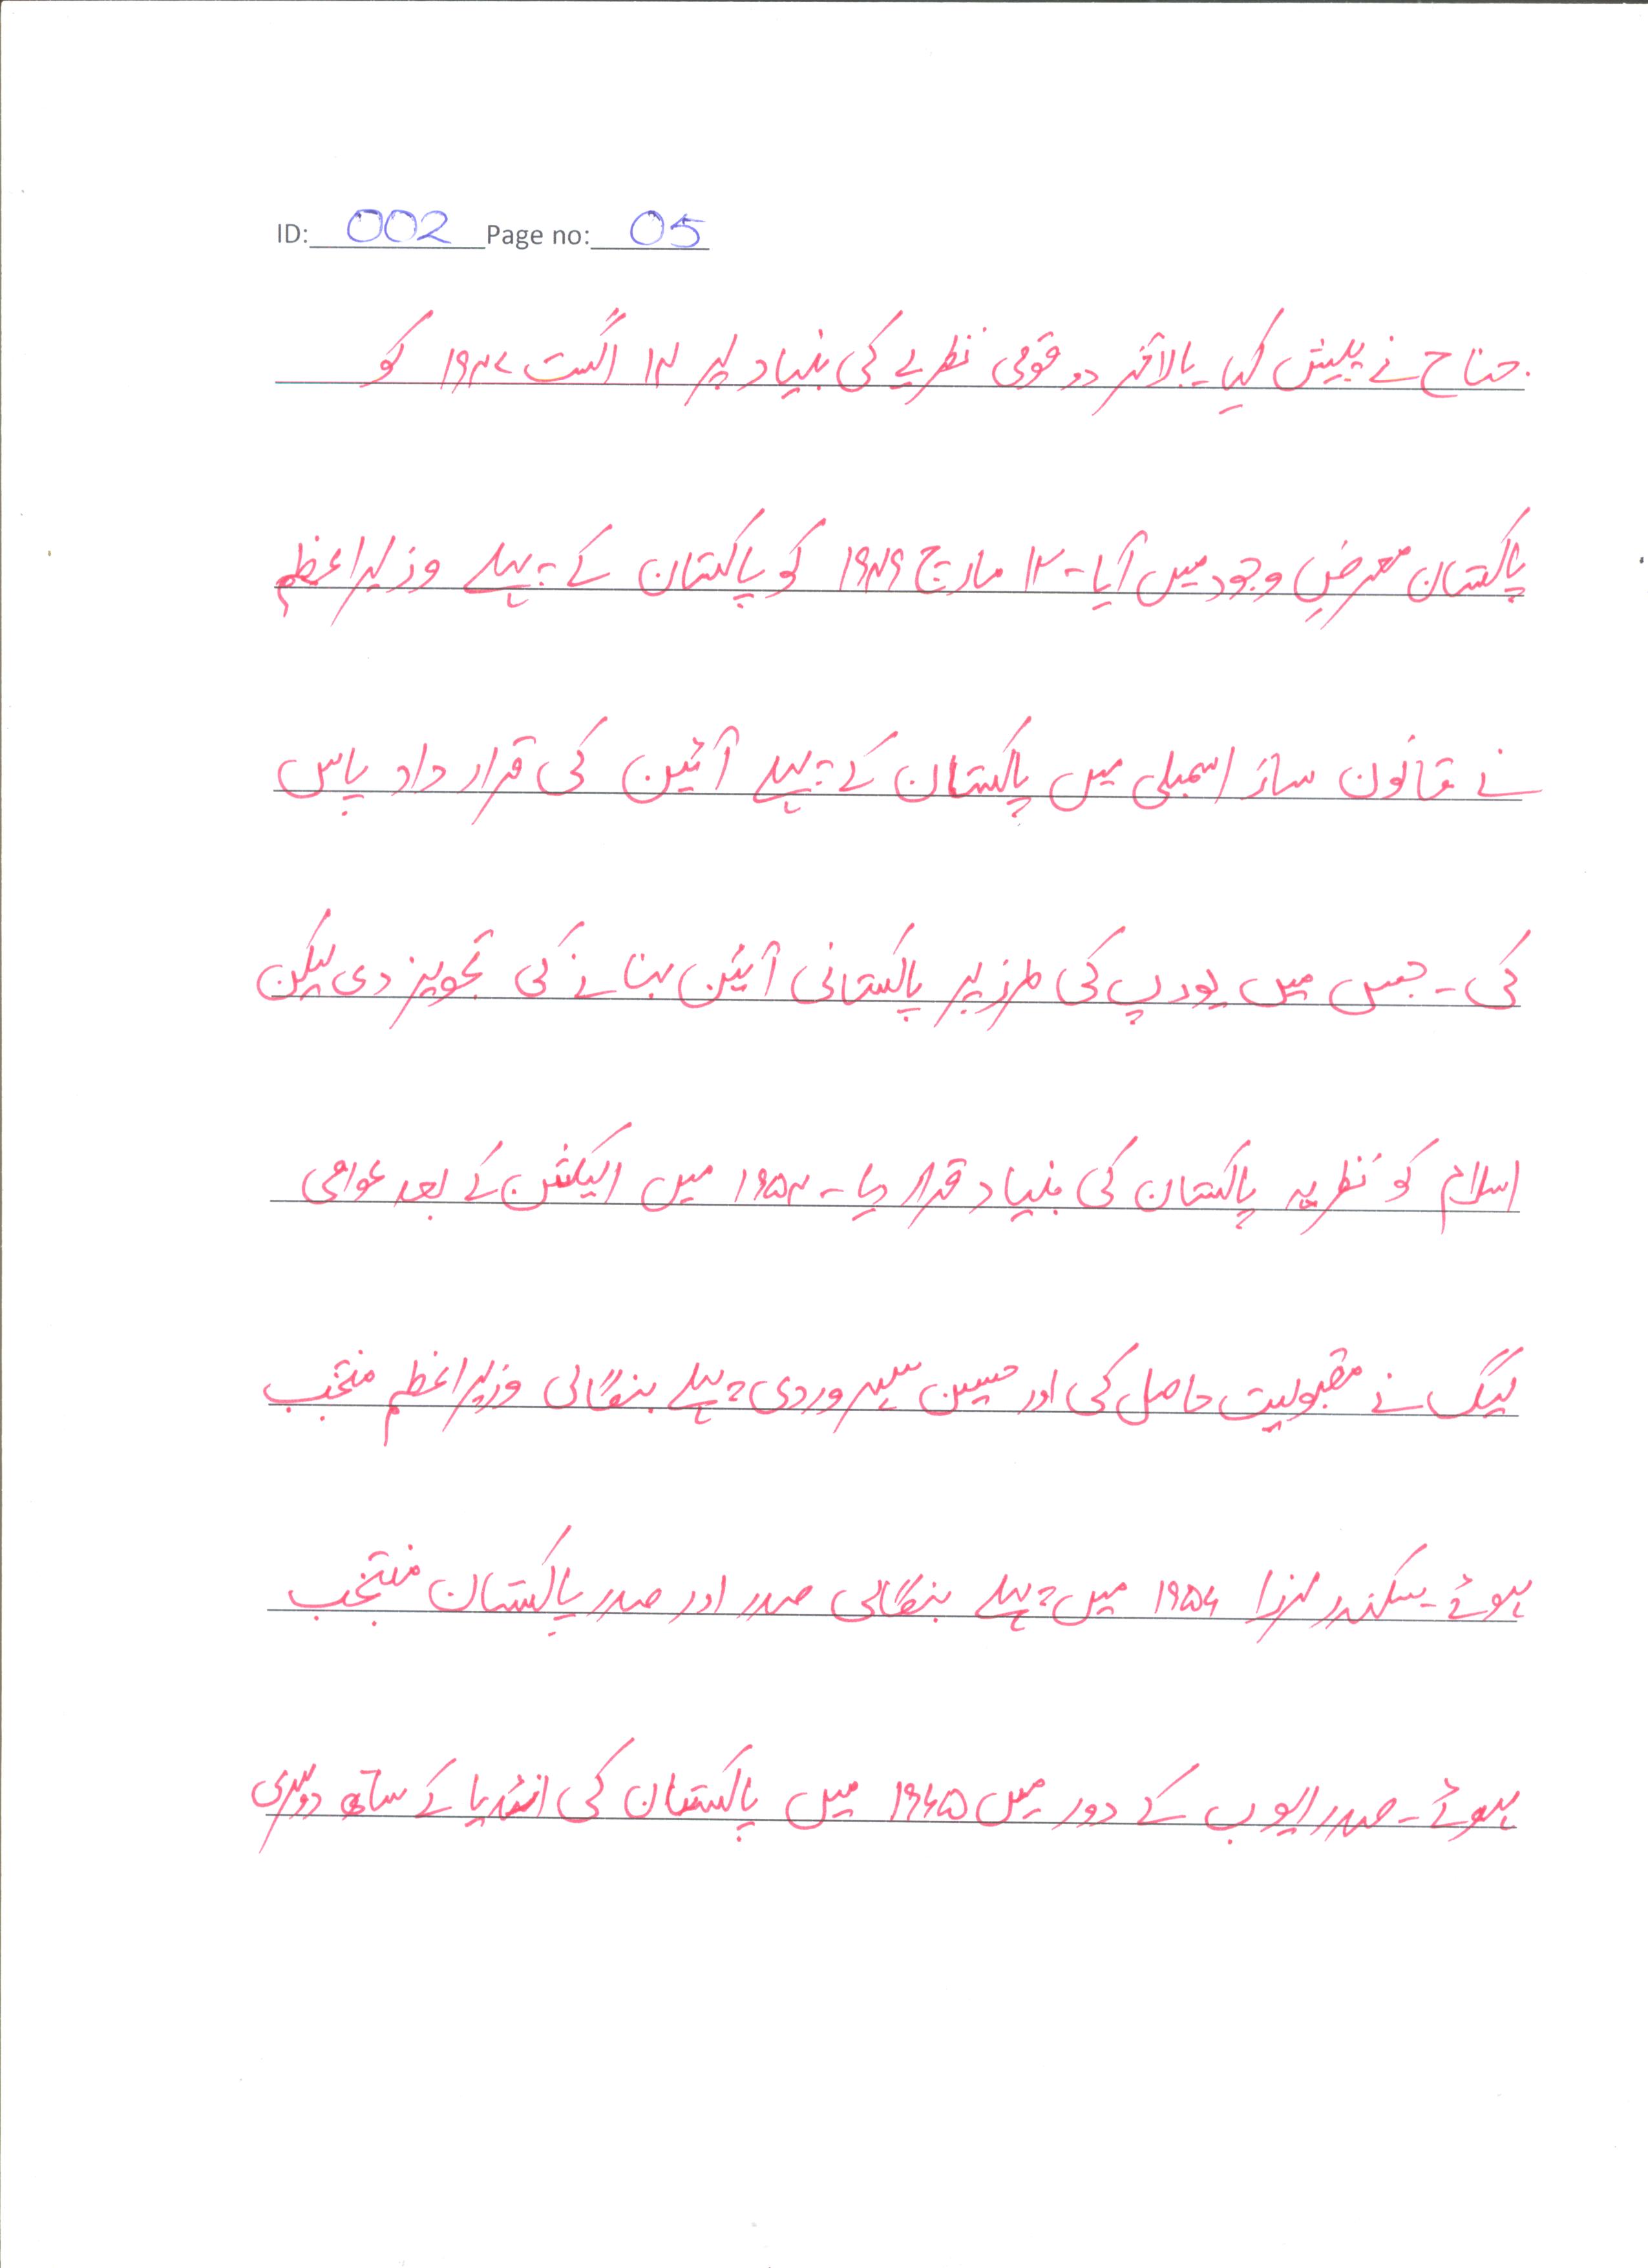 ID: 002 Page no: 05
جناح نے پیش کیا۔ بالآخر دو قومی نظریے کی بنیاد پر ۱۴ اگست ۱۹۴۷ کو
پاکستان معرضِ وجود میں آیا۔ ۱۲ مارچ ۱۹۴۹ کو پاکستان کے پہلے وزیراعظم
نے قانون ساز اسمبلی میں پاکستان کے پہلے آئین کی قرار داد پاس
کی۔ جس میں یورپ کی طرز پر پاکستانی آئین بنانے کی تجویز دی لیکن
اسلام کو نظریہ پاکستان کی بنیاد قرار دیا۔ ۱۹۵۴ میں الیکشن کے بعد عوامی
لیگ نے مقبولیت حاصل کی اور حسین سہروردی پہلے بنگالی وزیراعظم منتخب
ہوئے۔ سکندر مرزا ۱۹۵۶ میں پہلے بنگالی صدر اور صدر پاکستان منتخب
ہوئے۔ صدر ایوب کے دور میں ۱۹۶۵ میں پاکستان کی انڈیا کے ساتھ دوسری